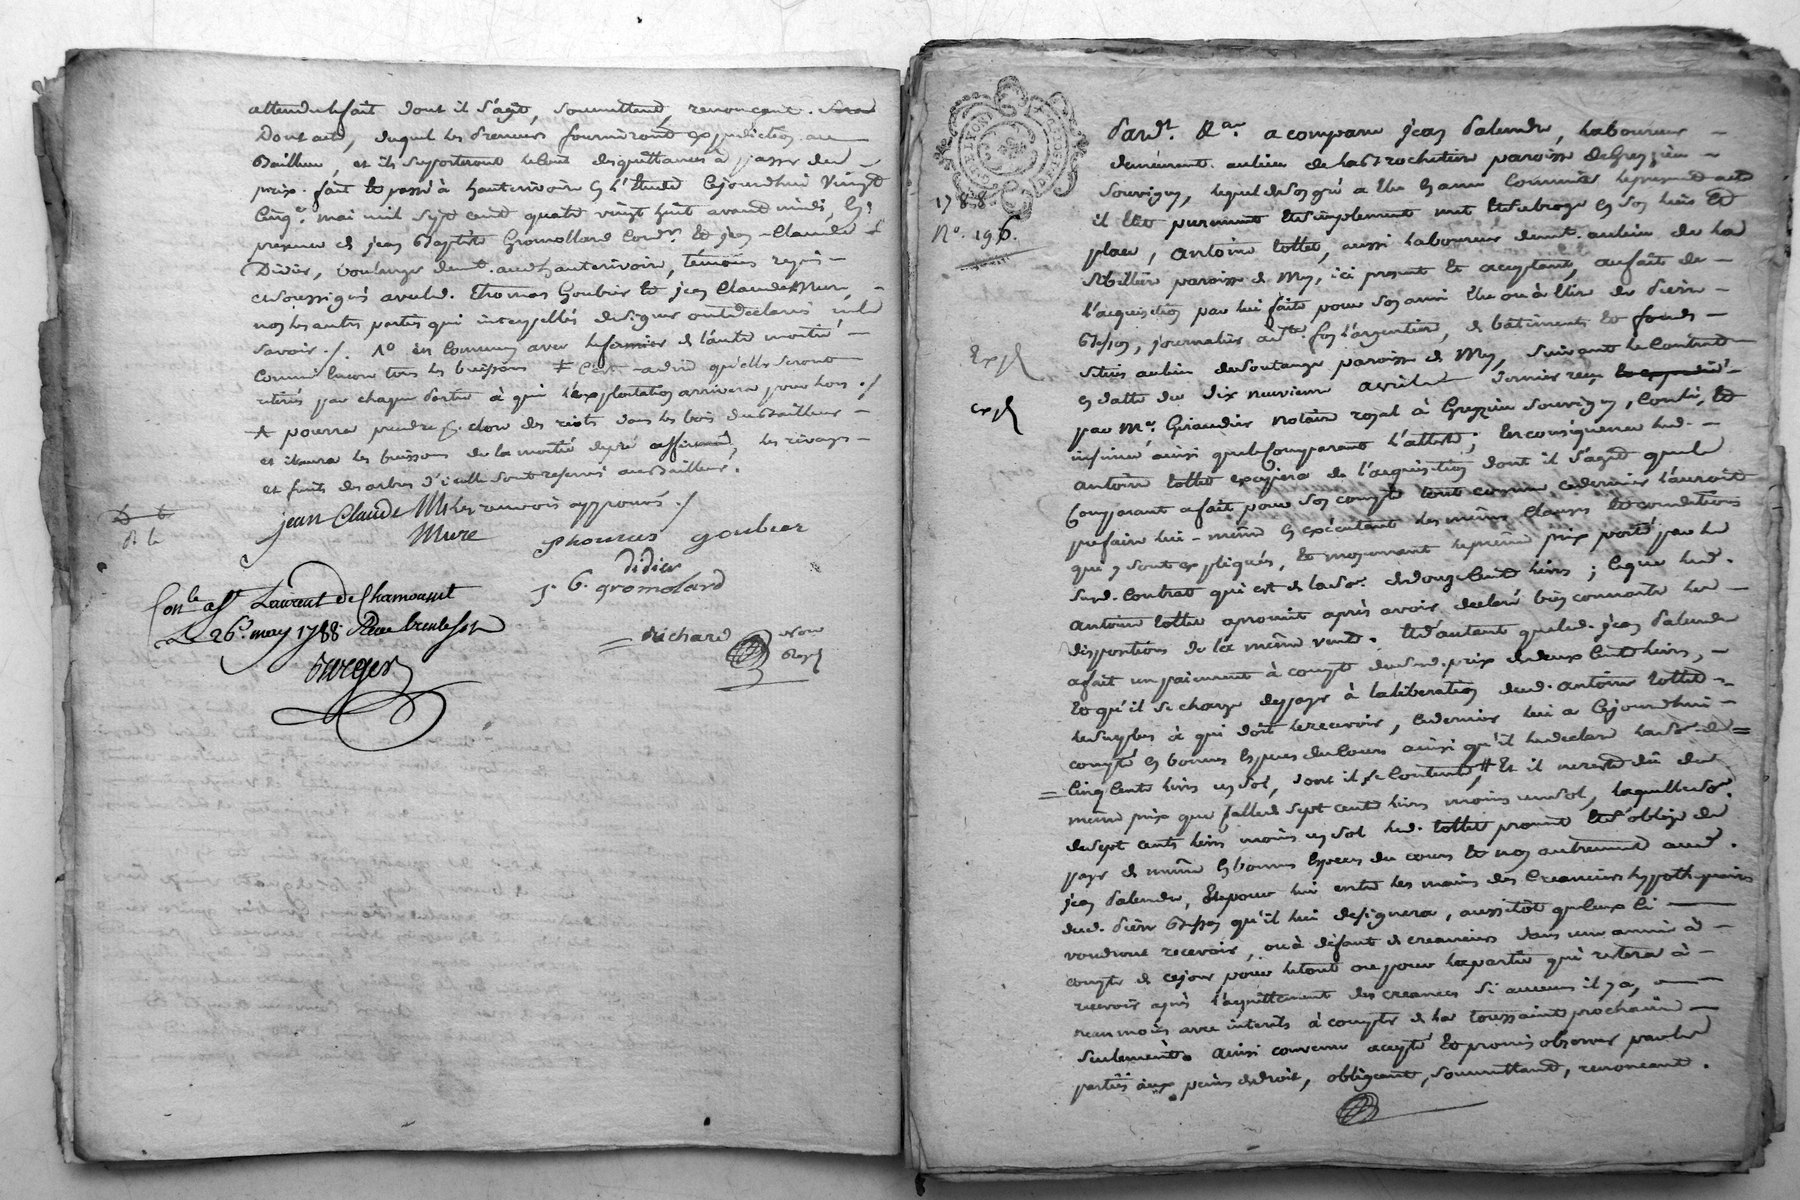 attendu le fait dont il s'agit, soumettant, renonceant.
Dont acte, duquel les preneurs fourniront expedition au
Bailleur, et ils suporteront le cout des quittances à passer du
prix. fait et passé à hauterivoire en l'Etude cejourdhui vingt
cinq.e mai mil sept cent quatre vingt huit avant midi, en
presence de jean Baptiste Gromollard Cord.r et jean-Claude
Didier, boulanger demt. aud. hauterivoire, temoins requis
et soussignés avec led. Thomas Goubier et jean Claude Mure,
non les autres parties qui interpellés de signer ont declaré ne le
savoir ./. 1o en commun avec le fermier de l'autre moitié
comme la con tous les buissons ≠ C'est-adire qu'elle seront
retirés par chaque partie à qui l'exploitation arrivera pour lors ./.
pourra prendre p.r clore des riots dans les bois du Bailleur
et il aura les buissons de la moitié du pré affermé, les rivages
et fruits des arbres d'icelle sont reservés au Bailleur.
jean Claude les renvois approuvés ./.
Mure Thoumas goubier
didier
J. B. gromolard
Con.lé à St. Laurent de Chamousset
Le 26.e may 1788 Recu trente sols
Richard Not.
Royl
Burger
GEN. DE LYON
1788
No. 196.
Pardt. &a. a comparu jean Palendre, laboureur
demeurant au lieu de la Brochetiere paroisse de Grezieu
Souvigny, lequel de son gré a Elu en ami comme le present acte
il Elit purement et simplement met et subroge en son lieu et
place, antoine tollet, aussi laboureur demt. au lieu de la
Ribellier paroisse de Mey, ici present et acceptant, au fait de
l'acquisition par lui faite pour son ami Elu ou à Elire de Pierre
Besson, journalier à Ste. foy l'argentiere, de bâtiments et fonds
Expé
situés au lieu de Soutange paroisse de Mey, suivant le contrat
en datte du dix neuvieme avril dernier reçu
expé
par Me. Giraudier notaire royal à Grezieu Souvigny, Conlé, et
insinué ainsi que le Comparant l'atteste; En consequence led.
antoine tollet jouira de l'acquisition dont il s'agit que le
Comparant a fait pour son compte tout comme ce dernier l'auroit
pu faire lui-même en exécutant les mêmes clauses et conditions
qui y sont expliqués, et moyennant le même prix porté par le
susd. Contrat qui est de la So. de douze Cents livres; lequel led.
antoine tollet aprouvé après avoir declaré bien connoitre les
dispositions de la même vente. Et d'autant que led. jean Palendre
a fait un paiement à compte du susd. prix de deux Cents livres,
et qu'il se charge de payer à la liberation dud. antoine tollet
le surplus à qui doit le recevoir, ce dernier lui a cejourdhui
compté en bonnes Especes du cours ainsi qu'il le declare la So. de
Cinq Cents livres un sol, dont il se contente, # Et il ne reste dû du
même prix que celle de sept cents livres moins un sol, laquelle so.
de sept cents livres moins un sol led. tollet promet et s'oblige de
payer de même en bonnes Especes du cours et non autrement aud.
jean Palendre, Et pour lui entre les mains des Creanciers hypothequaires
dud. Pierre Besson qu'il lui designera, aussitôt qu'eux le
voudront recevoir, ou à défaut de creanciers dans une année à
compter de cejour pour le tout ou pour la partie qui restera à
recevoir après l'acquittement des creances si aucun il y a,
neanmoins avec interêts à compter de la toussaint prochaine
seulement. ainsi convenu accepté et promis observer par les
parties aux peines de droit, obligeant, soumettant, renonceant.